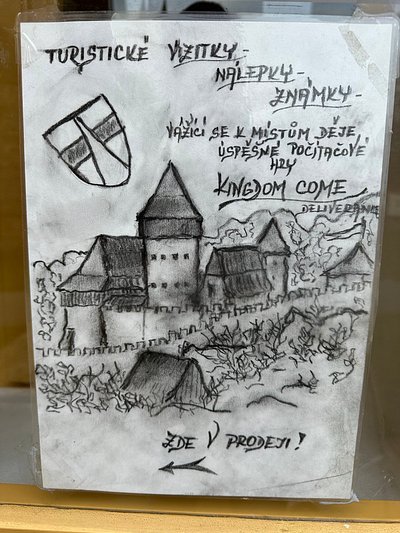 TURISTICKÉ VIZITKY -
NÁLEPKY -
ZNÁMKY -
VÁŽÍCÍ SE K MÍSTŮM DĚJE
ÚSPĚŠNÉ POČÍTAČOVÉ
HRY
KINGDOM COME
DELIVERANCE
ZDE V PRODEJI!